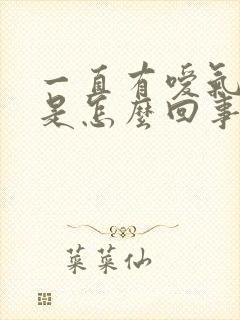 一直有噯氣
是怎麼回事
菜菜仙